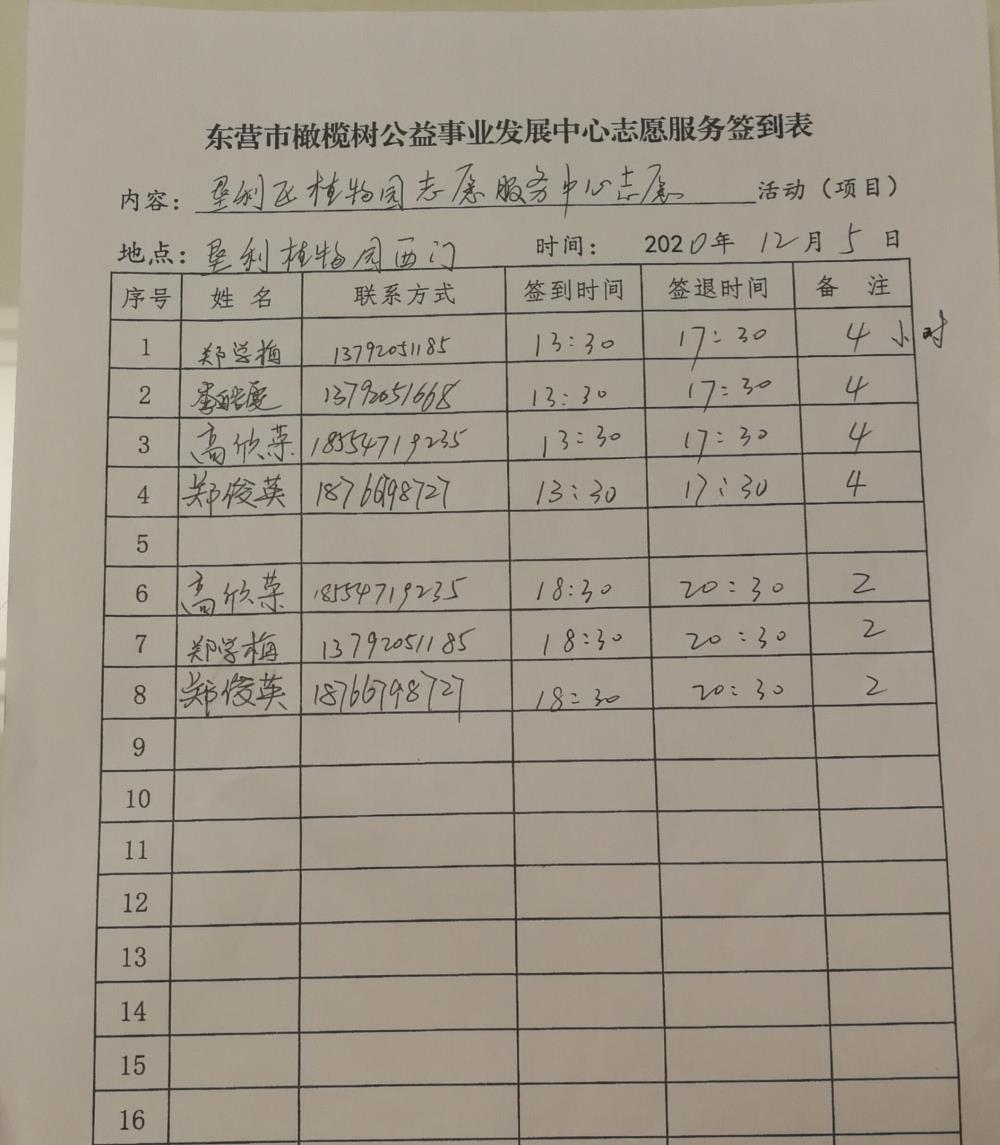 东营市橄榄树公益事业发展中心志愿服务签到表
内容：垦利区植物园志愿服务中心志愿 活动（项目）
地点：垦利植物园西门 时间： 2020年 12月 5 日
序号 姓名 联系方式 签到时间 签退时间 备注
1 郑学梅 13792051185 13:30 17:30 4小时
2 13792051668 13:30 17:30 4
3 高欣荣 18554719235 13:30 17:30 4
4 郑俊英 13:30 17:30 4
5
6 高欣荣 18554719235 18:30 20:30 2
7 郑学梅 13792051185 18:30 20:30 2
8 郑俊英 18766798727 18:30 20:30 2
9
10
11
12
13
14
15
16